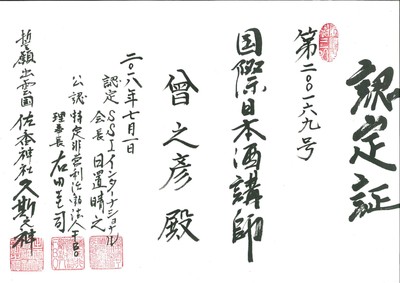 認定証
第二〇一六九号
国際日本酒講師
曾之彦殿
二〇一八年七月一日
認定 SSIインターナショナル
会長 日置晴之
公認 特定非営利活動法人FBO
理事長 右田圭司
誓願 出雲國 佐香神社 久斯之神